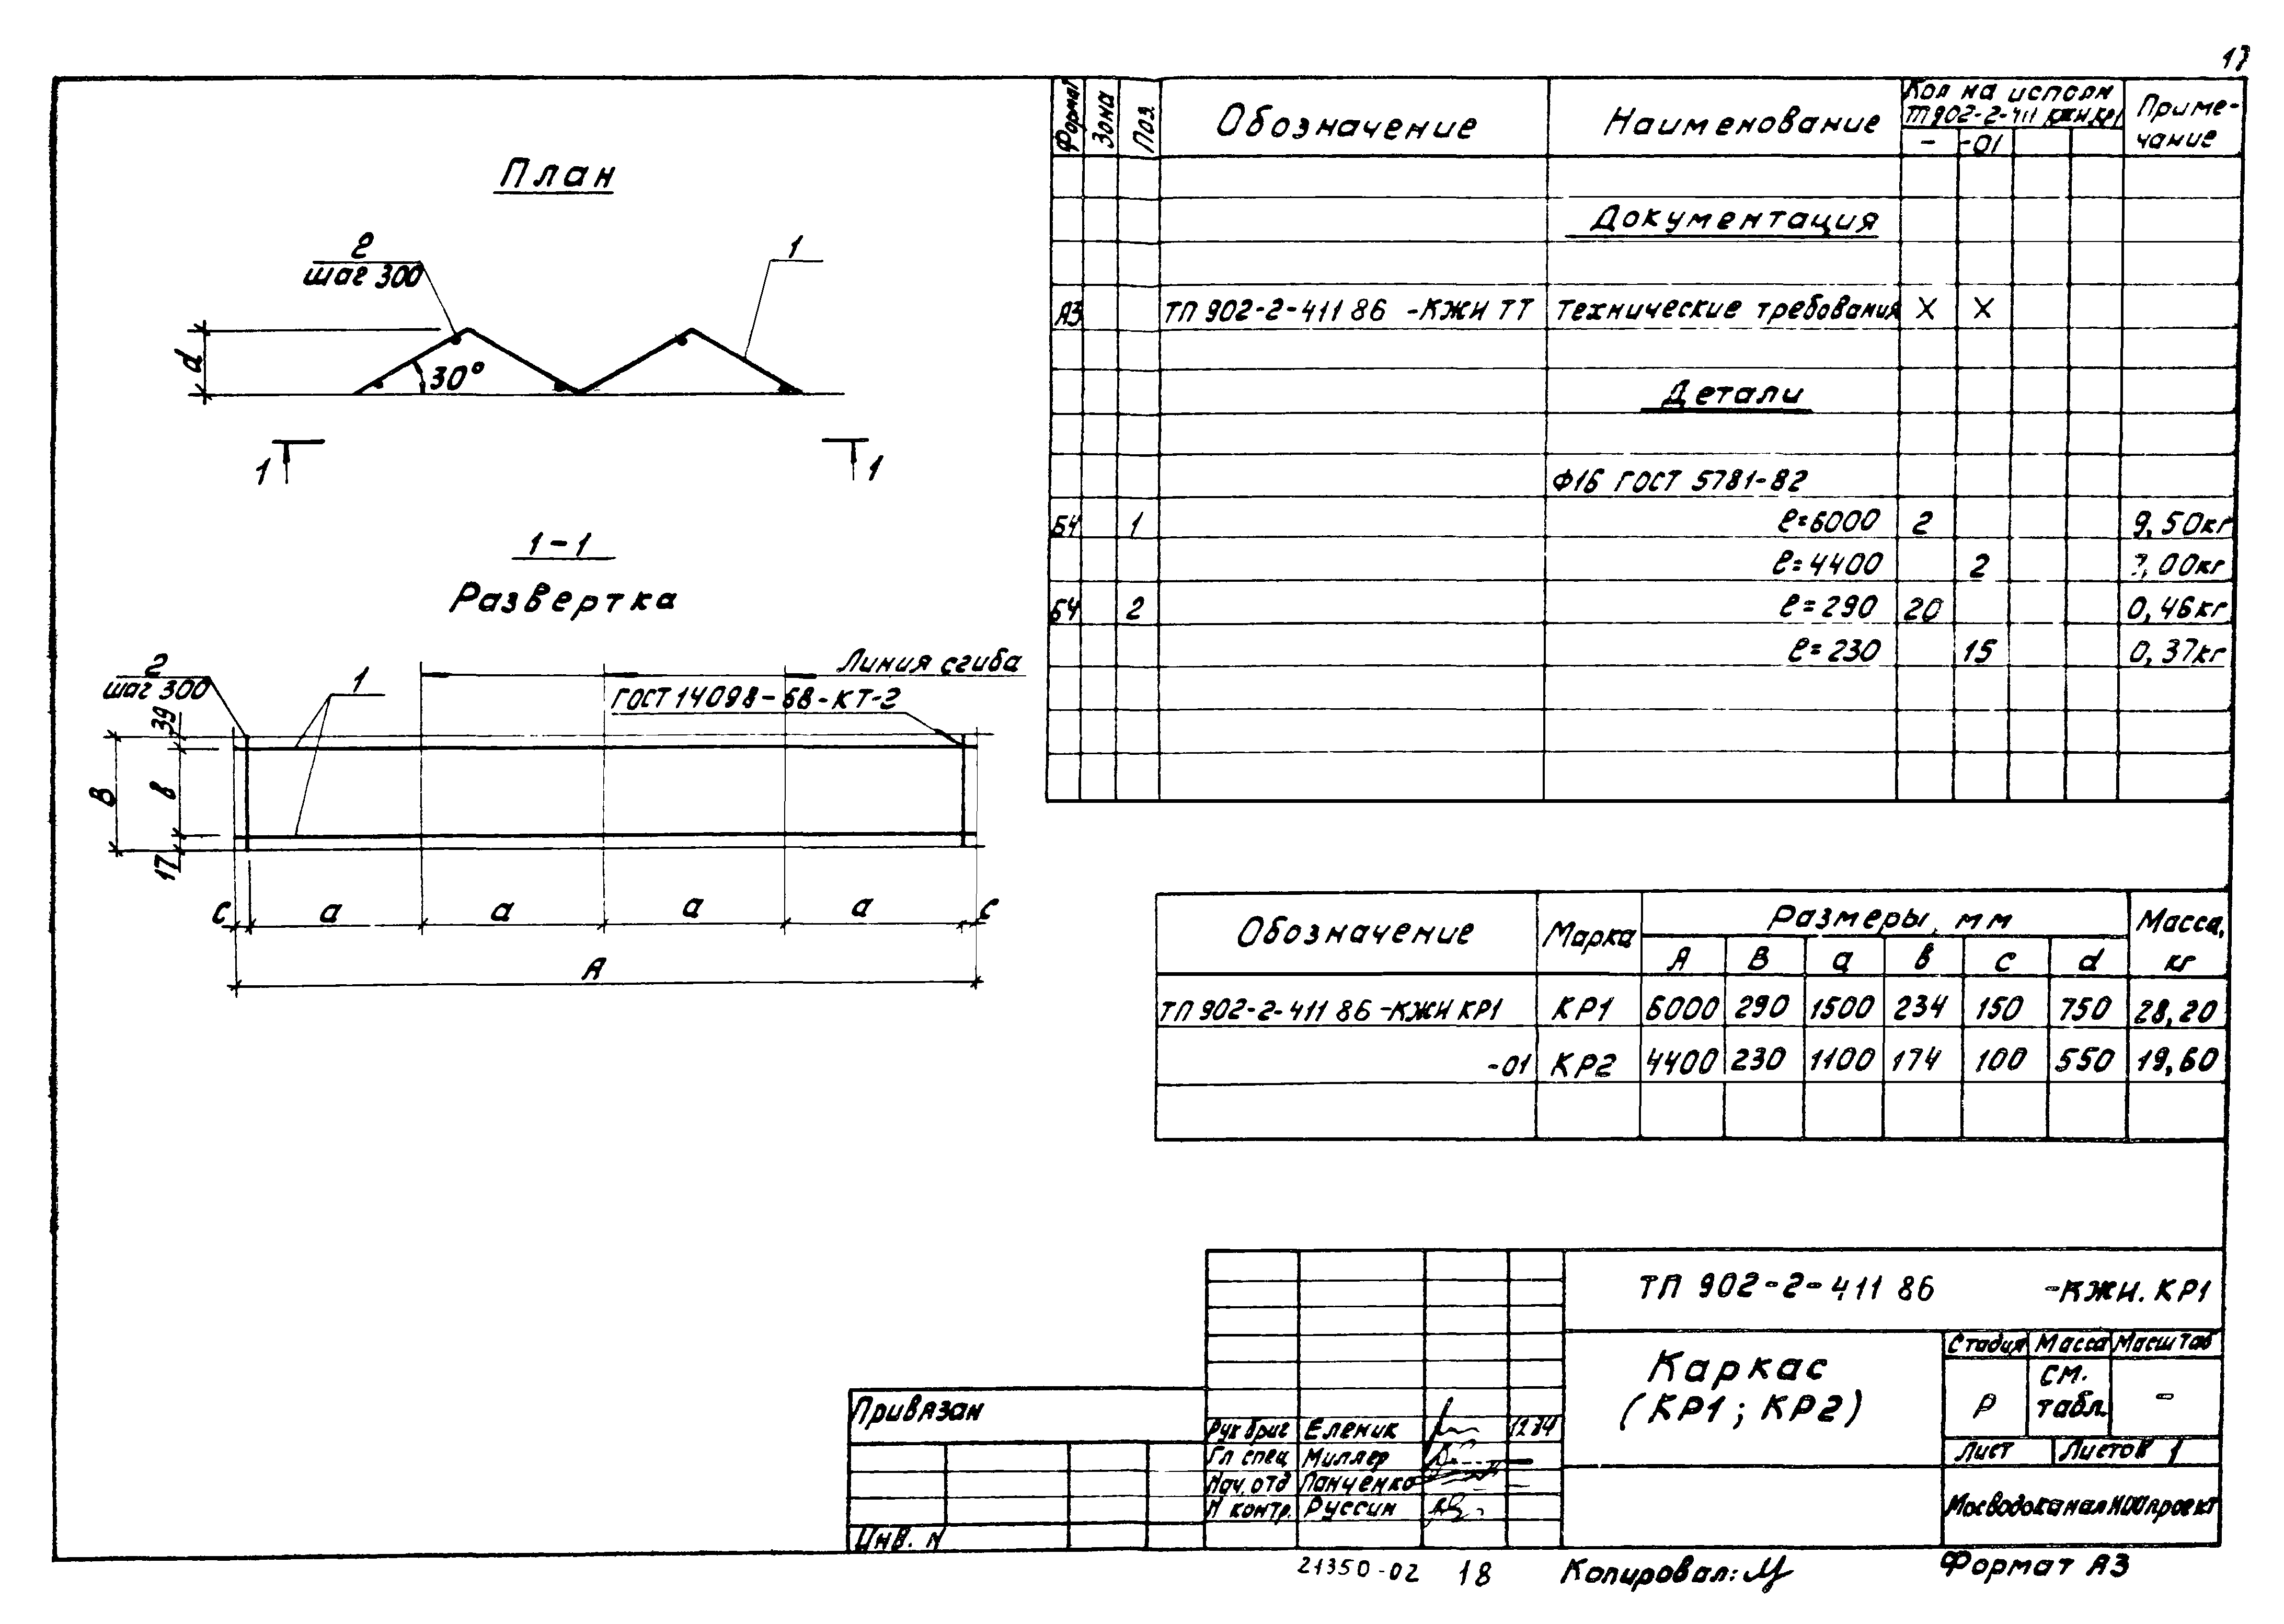 17
План
2
шаг 300
1
d
30°
1 1
1-1
Развертка
2
шаг 300
1
Линия сгиба
ГОСТ 14098-68-КТ-2
39
В
в
17
с а а а а с
А
Формат Зона Поз. Обозначение Наименование Кол на исполн ТП902-2-411 КЖИ КР1 Приме-чание
- -01
Документация
А3 ТП 902-2-411 86 -КЖИ ТТ Технические требования X X
Детали
Ф16 ГОСТ 5781-82
БЧ 1 ℓ=6000 2 9,50кг
ℓ=4400 2 7,00кг
БЧ 2 ℓ=290 20 0,46кг
ℓ=230 15 0,37кг
Обозначение Марка Размеры, мм Масса, кг
А В а в с d
ТП 902-2-411 86 -КЖИ КР1 КР1 6000 290 1500 234 150 750 28,20
-01 КР2 4400 230 1100 174 100 550 19,60
ТП 902-2-411 86 -КЖИ. КР1
Каркас
(КР1; КР2)
Стадия Масса Масштаб
Р см. табл. -
Лист Листов 1
Привязан
Рук бриг Еленик 12.84
Гл спец Миллер
Нач. отд Панченко
Н контр. Руссин
Инв. N
21350-02 18
Копировал:
Формат А3